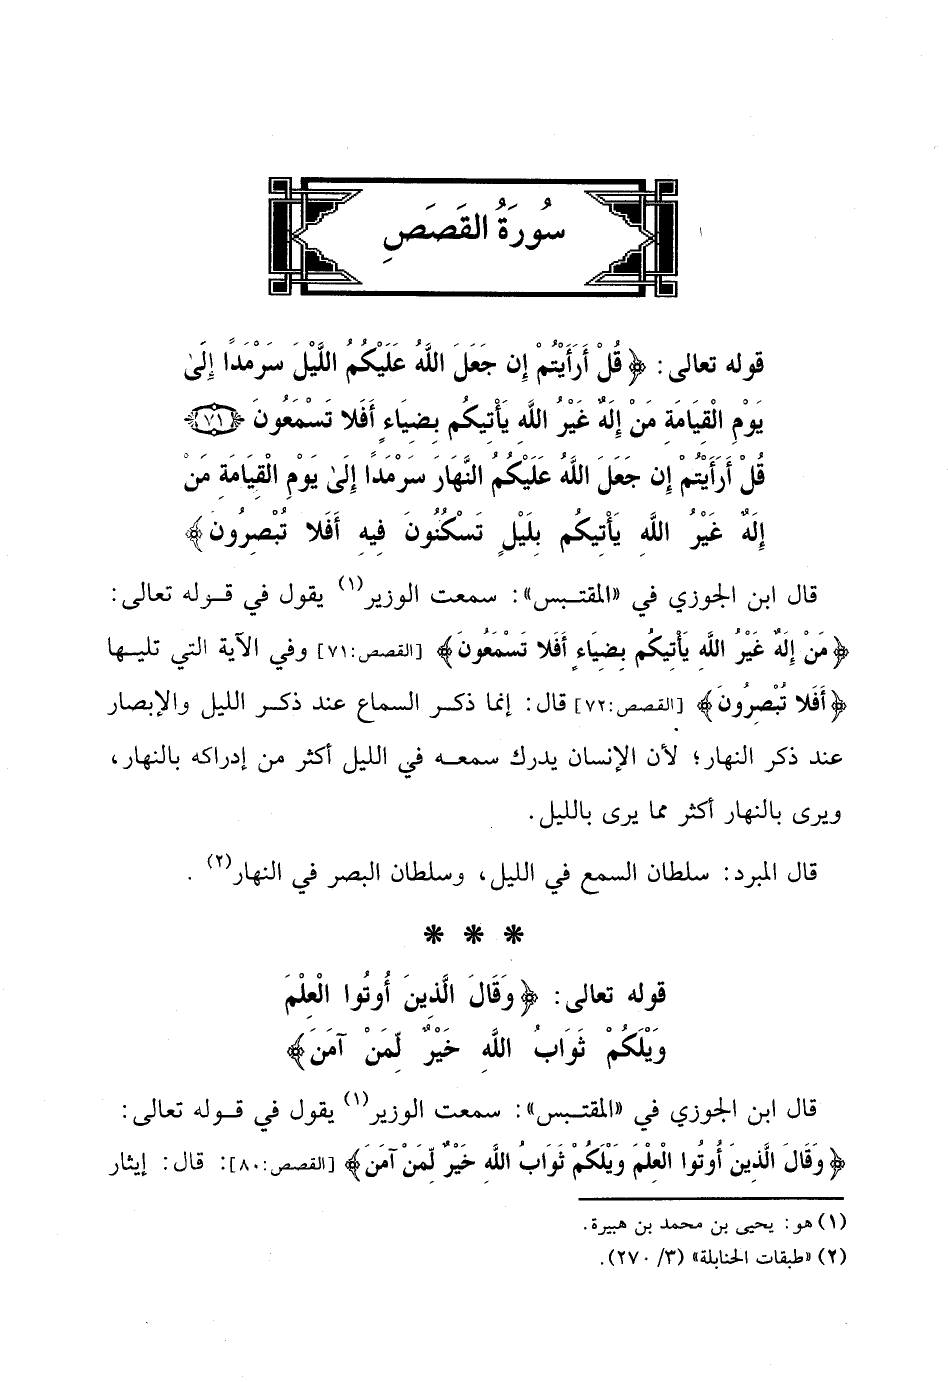 سُورَةُ القَصَصِ
قوله تعالى: ﴿قُلْ أَرَأَيْتُمْ إِن جَعَلَ اللَّهُ عَلَيْكُمُ اللَّيْلَ سَرْمَدًا إِلَىٰ
يَوْمِ الْقِيَامَةِ مَنْ إِلَهٌ غَيْرُ اللَّهِ يَأْتِيكُم بِضِيَاءٍ أَفَلا تَسْمَعُونَ ﴿٧١﴾
قُلْ أَرَأَيْتُمْ إِن جَعَلَ اللَّهُ عَلَيْكُمُ النَّهَارَ سَرْمَدًا إِلَىٰ يَوْمِ الْقِيَامَةِ مَنْ
إِلَهٌ غَيْرُ اللَّهِ يَأْتِيكُم بِلَيْلٍ تَسْكُنُونَ فِيهِ أَفَلا تُبْصِرُونَ﴾
قال ابن الجوزي في «المقتبس»: سمعت الوزير(١) يقول في قوله تعالى:
﴿مَنْ إِلَهٌ غَيْرُ اللَّهِ يَأْتِيكُم بِضِيَاءٍ أَفَلا تَسْمَعُونَ﴾ [القصص:٧١] وفي الآية التي تليها
﴿أَفَلا تُبْصِرُونَ﴾ [القصص:٧٢] قال: إنما ذكر السماع عند ذكر الليل والإبصار
عند ذكر النهار؛ لأن الإنسان يدرك سمعه في الليل أكثر من إدراكه بالنهار،
ويرى بالنهار أكثر مما يرى بالليل.
قال المبرد: سلطان السمع في الليل، وسلطان البصر في النهار(٢).
* * *
قوله تعالى: ﴿وَقَالَ الَّذِينَ أُوتُوا الْعِلْمَ
وَيْلَكُمْ ثَوَابُ اللَّهِ خَيْرٌ لِّمَنْ آمَنَ﴾
قال ابن الجوزي في «المقتبس»: سمعت الوزير(١) يقول في قوله تعالى:
﴿وَقَالَ الَّذِينَ أُوتُوا الْعِلْمَ وَيْلَكُمْ ثَوَابُ اللَّهِ خَيْرٌ لِّمَنْ آمَنَ﴾ [القصص:٨٠]: قال: إيثار
(١) هو: يحيى بن محمد بن هبيرة.
(٢) «طبقات الحنابلة» (٣/ ٢٧٠).